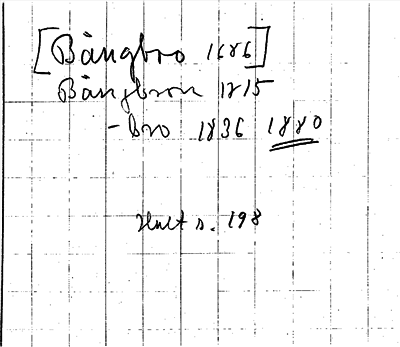 [Bångbro 1686]
Bångbron 1815
- bro 1836 1880
Hult s. 198